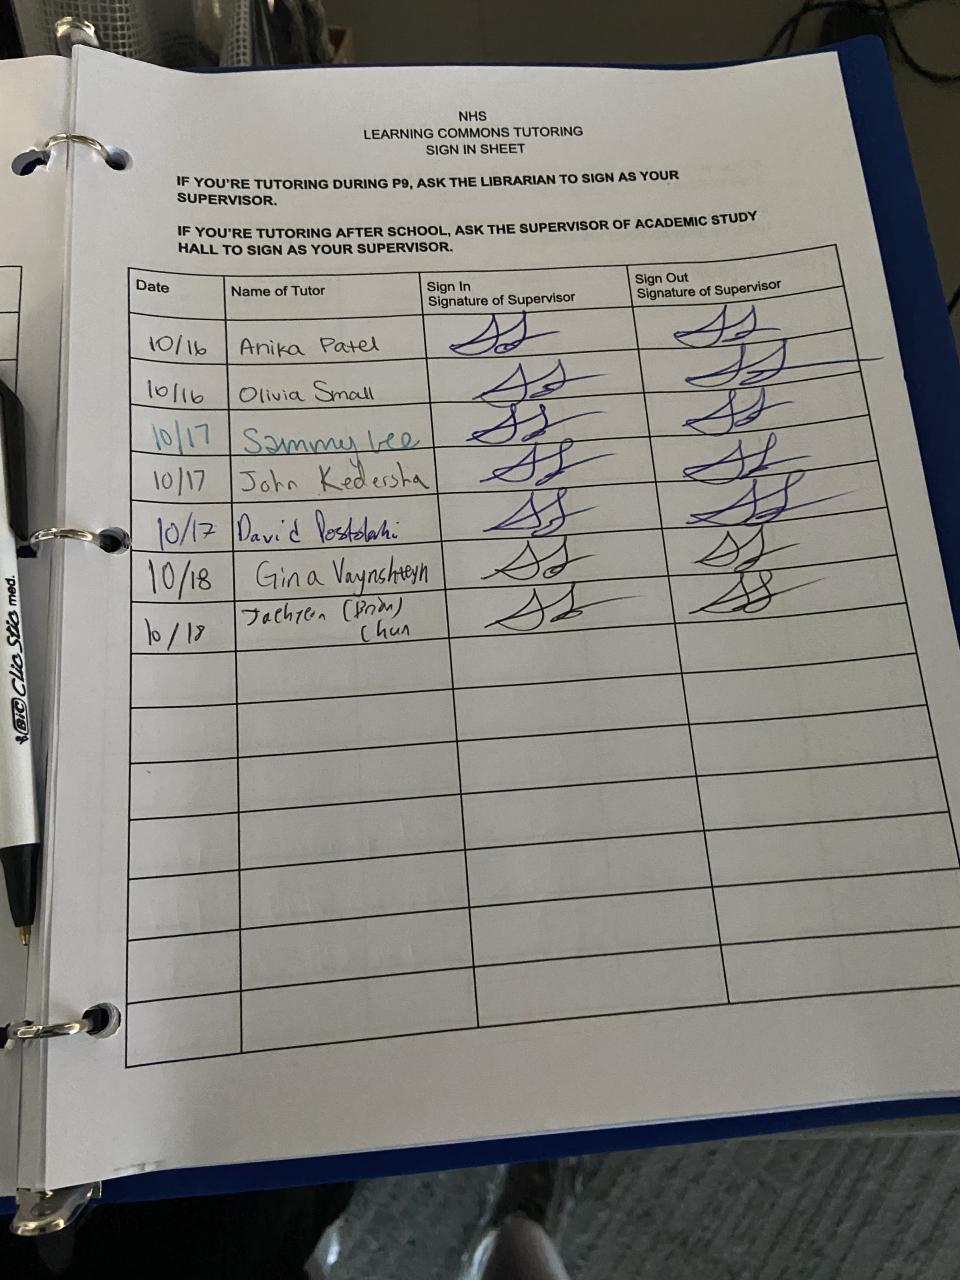 NHS
LEARNING COMMONS TUTORING
SIGN IN SHEET
IF YOU'RE TUTORING DURING P9, ASK THE LIBRARIAN TO SIGN AS YOUR
SUPERVISOR.
IF YOU'RE TUTORING AFTER SCHOOL, ASK THE SUPERVISOR OF ACADEMIC STUDY
HALL TO SIGN AS YOUR SUPERVISOR.
Date Name of Tutor Sign In Signature of Supervisor Sign Out Signature of Supervisor
10/16 Anika Patel
10/16 Olivia Small
10/17 Sammy Lee
10/17 John Kedersha
10/17 David Postolachi
10/18 Gina Vaynshteyn
10/18 (Brian)
Chun
BIC Clic Stic med.